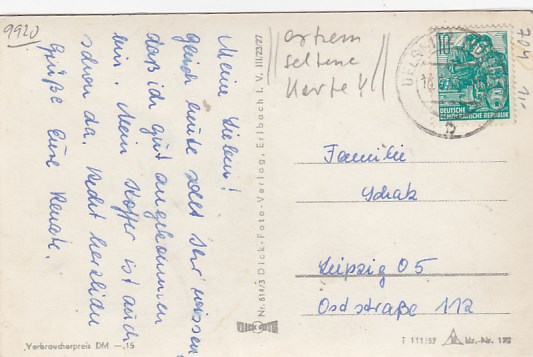 9920
Meine Lieben!
Gleich heute sollt Ihr wissen,
daß ich gut angekommen
bin. Mein Koffer ist auch
schon da. Recht herzliche
Grüße Eure Renate.
Verbraucherpreis DM —,15
Nr. 614/3 Dick-Foto-Verlag, Erlbach i. V. III/23/77
DICK FOTO
extrem
seltene
Karte!!
704
OELSN
10
DEUTSCHE
DEMOKRATISCHE REPUBLIK
b
Familie
Schatz
Leipzig O5
Oststraße 112
T 111/57